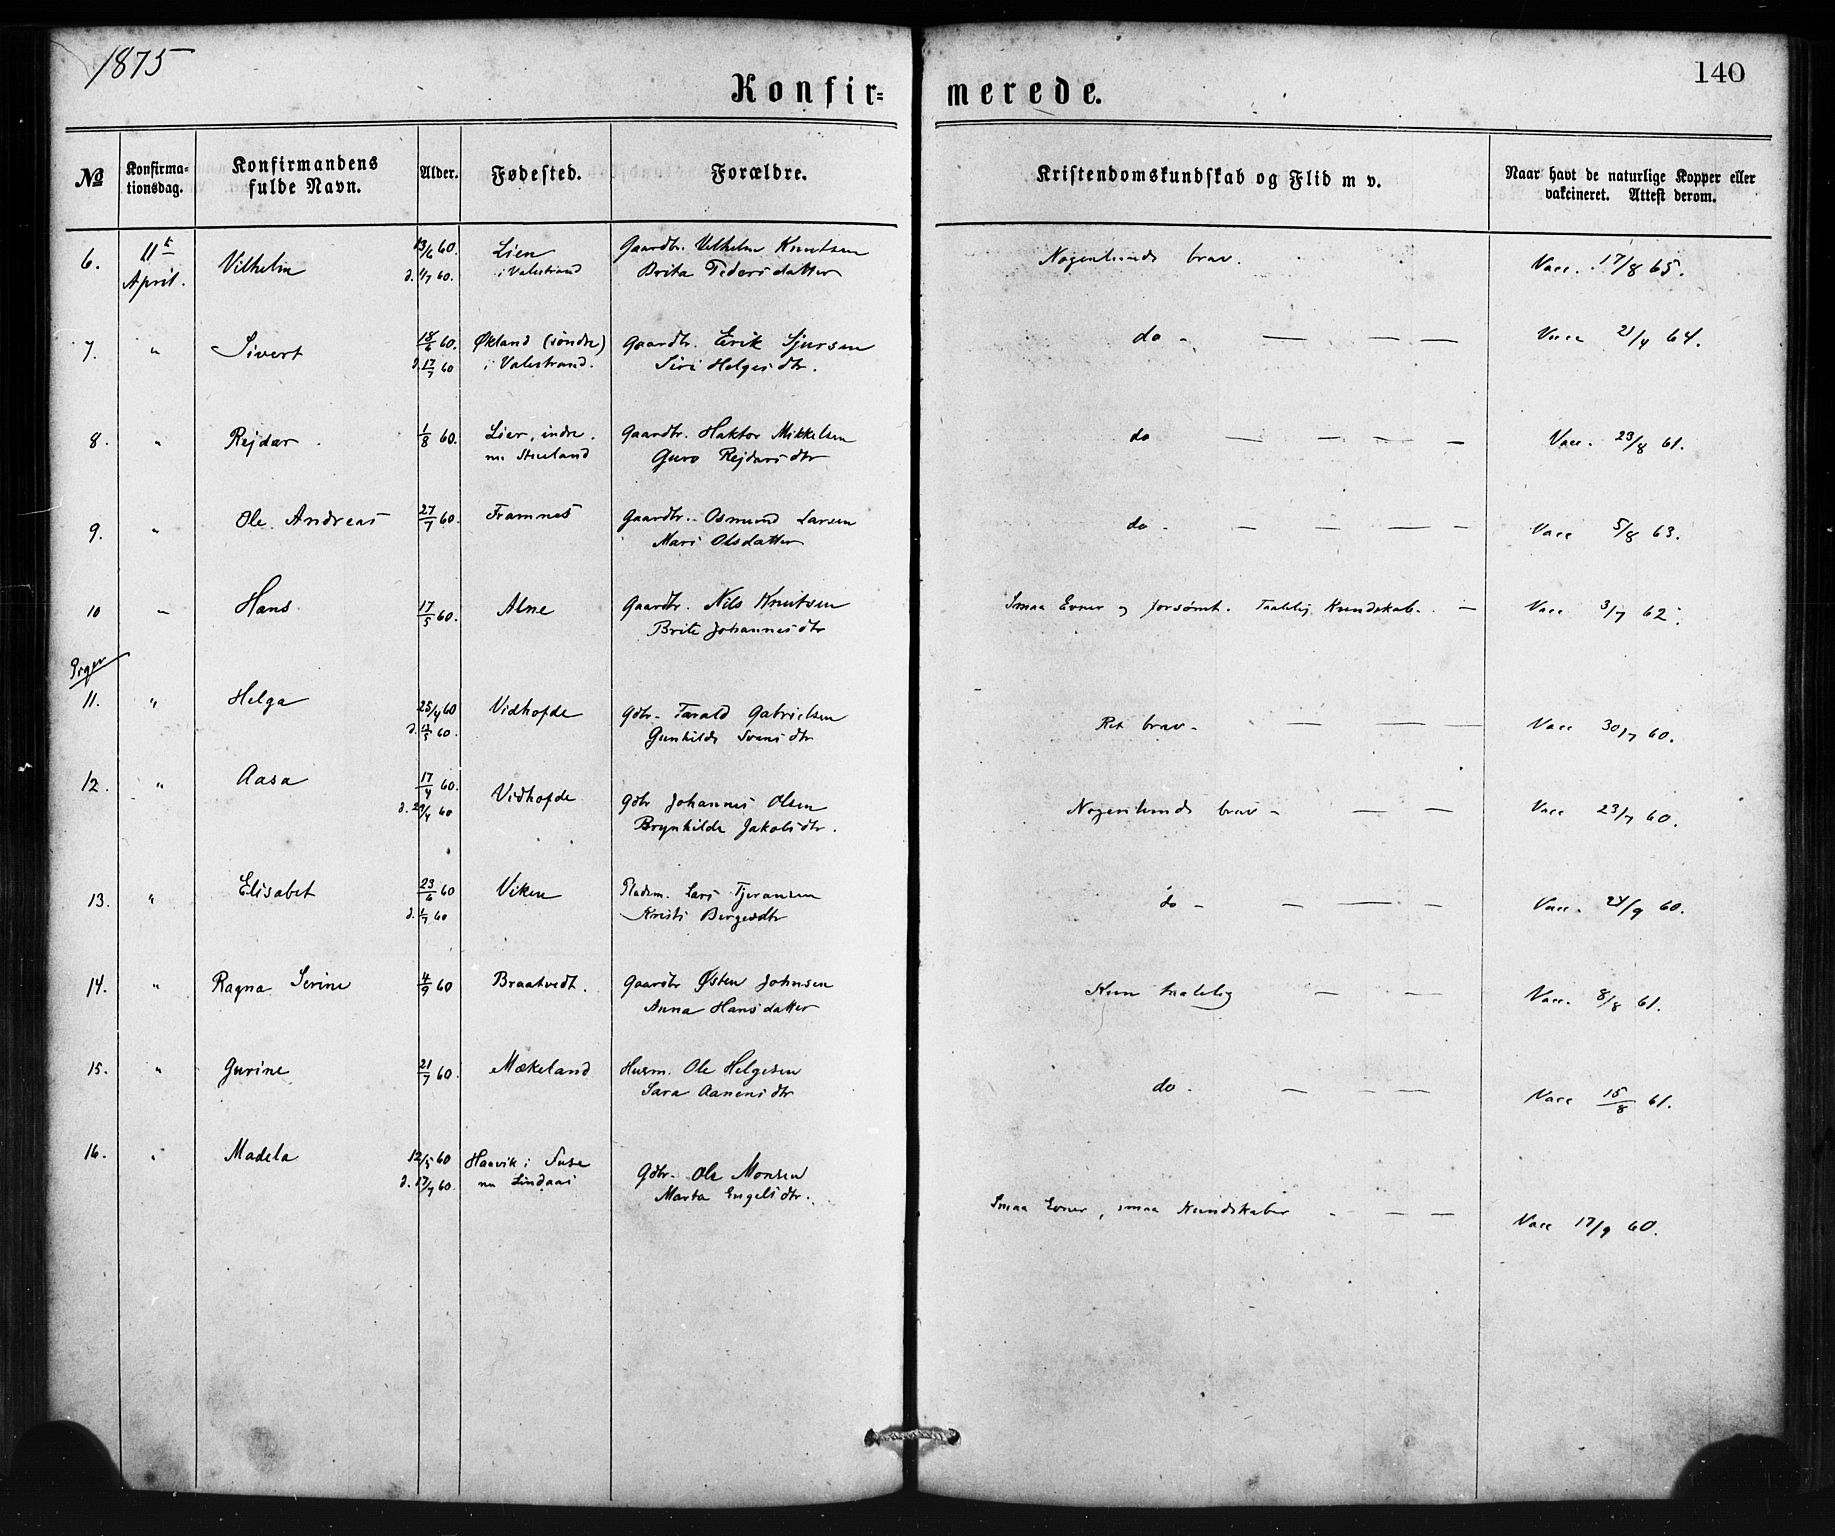 1875
140
Konfir=merede.
№ Konfirmationsdag. Konfirmandens fulde Navn. Alder. Fødested. Forældre. Kristendomskundskab og Flid m v. Naar havt de naturlige Kopper eller vakcineret. Attest derom.
6. 11te April. Vilhelm 13/6 60. d. 1/7 60. Lien i Valestrand Gaardbr. Vilhelm Knutsen Brita Pedersdatter Nogenlunde brav. Vacc. 17/8 65.
7. " Sivert 18/6 60. d. 17/7 60 Økland (søndre) i Valestrand. Gaardbr. Erik Sjursen Siri Helgesdtr. do - — — — Vacc 21/4 64.
8. " Rejdar 1/8 60. Lier, indre. nu Gaardbr. Haktor Mikkelsen Guro Rejdarsdtr do — — — — Vacc. 23/8 61.
9. " Ole Andreas 27/7 60. Framnes Gaardbr. Osmund Larsen Mari Olsdatter do - — — — — Vacc 5/8 63.
10 " Hans 17/5 60. Alne Gaardbr. Nils Knutsen Brite Johannesdtr Smaa Evner og forsømt. Taalelig Kundskab. — Vacc 3/7 62.
Piger
11. " Helga 25/4 60 d. 17/5 60. Vidhofde Gdbr. Tarald Gabrielsen Gunhilde Svensdtr Ret brav - — — — Vacc 30/7 60.
12. " Aasa 17/4 60. d. 29/4 60 Vidhofde Gdbr Johannes Olsen Brynhilde Jakobsdtr. Nogenlunde brav - — — Vacc 23/7 60.
13. " Elisabet 23/6 60 d. 1/7 60 Viken Pladsm. Lars Tjeransen Kristi Bergesdtr do - - — — Vacc. 24/9 60.
14. " Ragna Serine 4/9 60 Braatvedt. Gaardbr Østen Johnsen Anna Hansdatter Kun taalelig — — Vacc. 8/8 61.
15. " Gurine 21/7 60. Mækeland Husm. Ole Helgesen Sara Aanensdtr do - — — — Vacc 15/8 61.
16. " Madela 12/5 60 d. 17/7 60. Haavik i nu Lindaas Gdbr. Ole Monsen Marta Engelsdtr. Smaa Evner, smaa Kundskaber - — — Vacc 17/9 60.